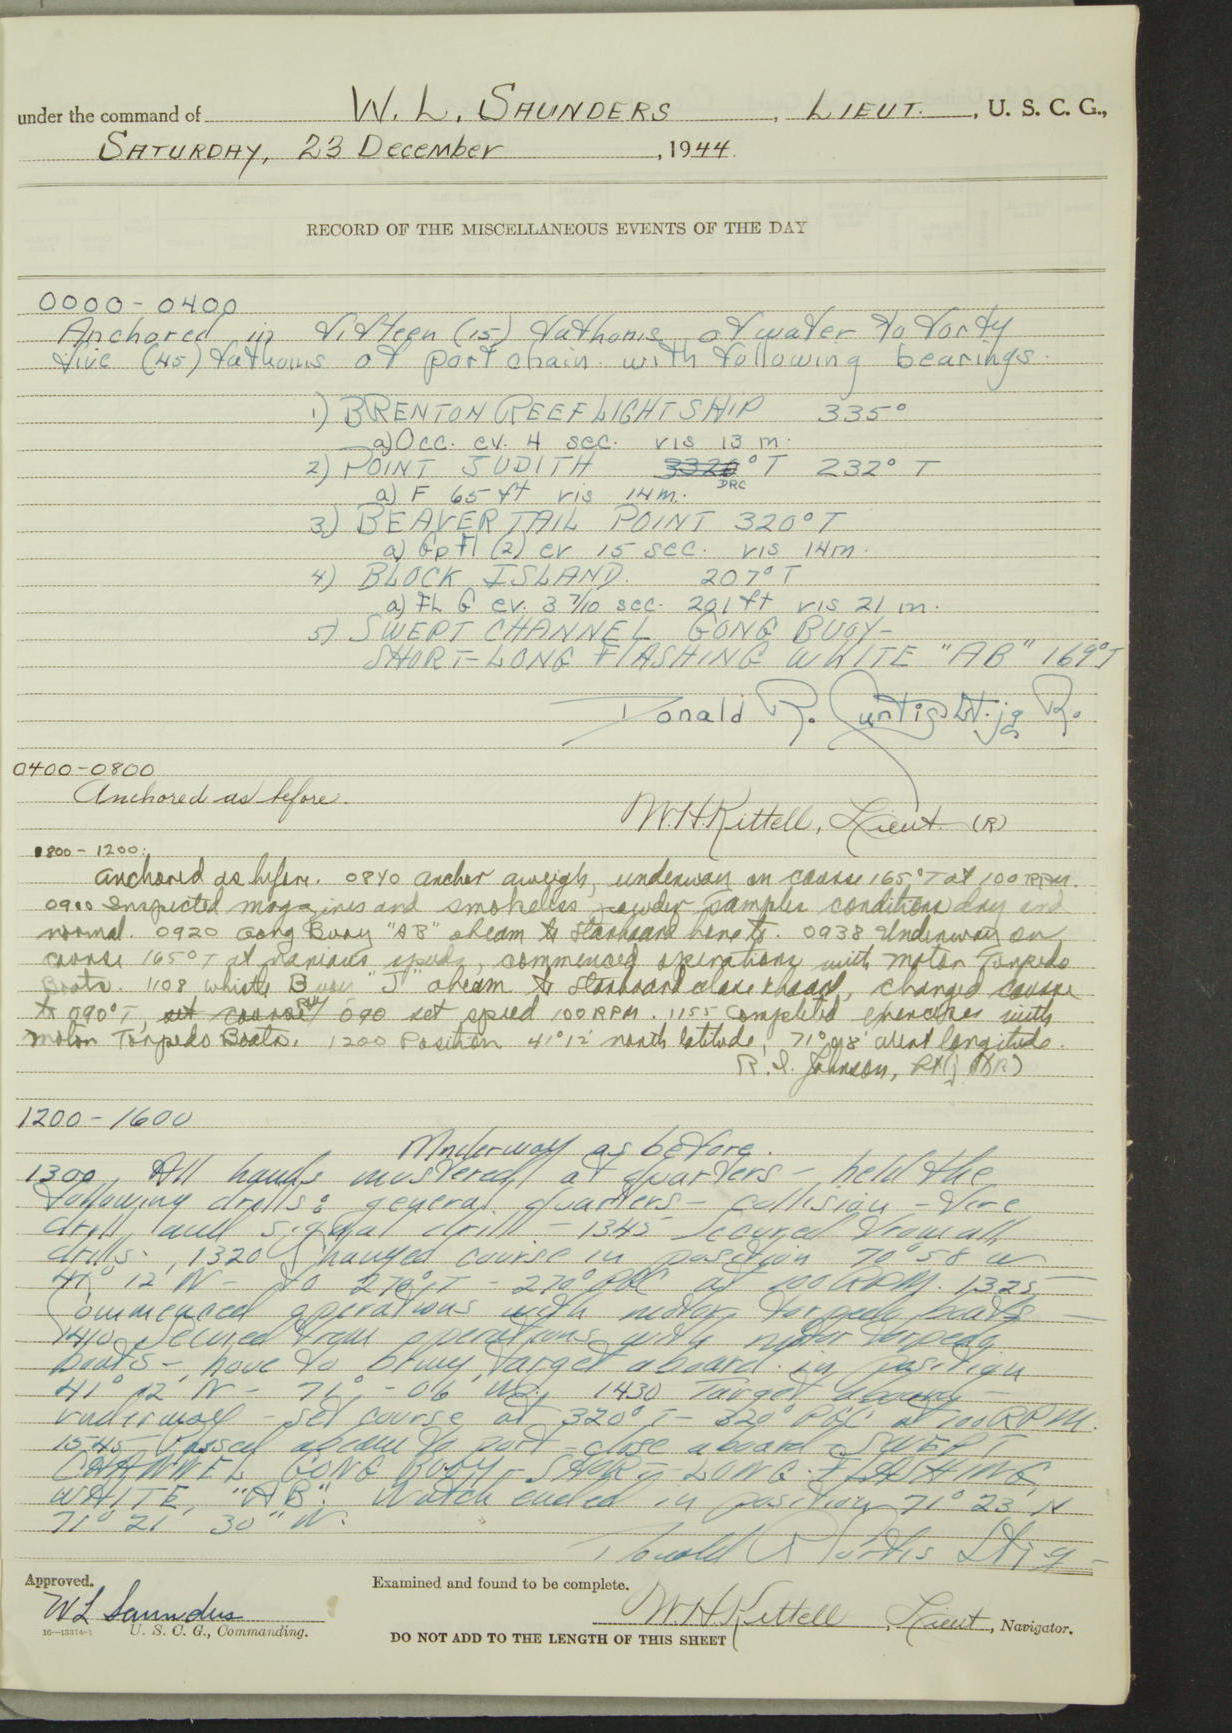 under the command of W. L. SAUNDERS, LIEUT., U. S. C. G.,
SATURDAY, 23 December, 1944.
RECORD OF THE MISCELLANEOUS EVENTS OF THE DAY
0000 - 0400
Anchored in fifteen (15) fathoms of water to forty
five (45) fathoms of port chain with following bearings.
1) BRENTON REEF LIGHTSHIP 335°
a) Occ. ev. 4 sec. vis 13 m.
2) POINT JUDITH 332° T 232° T
DRC
a) F 65 ft vis 14 m.
3) BEAVER TAIL POINT 320° T
a) Gp Fl (2) ev 15 sec. vis 14 m.
4) BLOCK ISLAND. 207° T
a) FL G ev. 3 7/10 sec. 201 ft vis 21 m.
5) SWEPT CHANNEL GONG BUOY -
SHORT-LONG FLASHING WHITE "AB" 169° T
Donald R. Curtis Lt. jg R.
0400-0800
Anchored as before.
W.H. Kittell, Lieut. (R)
0800 - 1200:
Anchored as before. 0840 anchor aweigh, underway on course 165° T at 100 RPM.
0900 inspected magazines and smokeless powder samples conditions dry and
normal. 0920 Gong Buoy "AB" abeam to starboard. 0938 Underway on
course 165° T at various speeds, commenced operations with Motor Torpedo
Boats. 1108 whistle Buoy "J" abeam to starboard close aboard, changed course
to 090° T, set course 090 set speed 100 RPM. 1155 Completed exercises with
Motor Torpedo Boats. 1200 Position 41° 12' north latitude, 71° 08' west longitude.
R. I. Johnson,
1200 - 1600
Underway as before.
1300 All hands mustered at quarters - held the
following drills: general quarters - collision - fire
drill and signal drill - 1345 secured from all
drills. 1320 Changed course in position 70° 58' W
41° 12' N - to 270° T - 270° PGC at 100 RPM. 1325
Commenced operations with motor torpedo boats -
1410 Secured from operations with motor torpedo
boats - hove to bring target aboard in position
41° 12' N - 71° - 06' W. 1430 Target aboard -
underway - set course at 320° T - 320° PGC at 100 RPM.
1545 - Passed abeam to port - close aboard - SWEPT
CHANNEL GONG BUOY - SHORT - LONG FLASHING
WHITE, "AB". Watch ended in position 71° 23' N
71° 21' 30" W.
Donald R Curtis Lt jg
Approved.
W L Saunders
16—13314-1 U. S. C. G., Commanding.
Examined and found to be complete.
W.H. Kittell, Lieut, Navigator.
DO NOT ADD TO THE LENGTH OF THIS SHEET